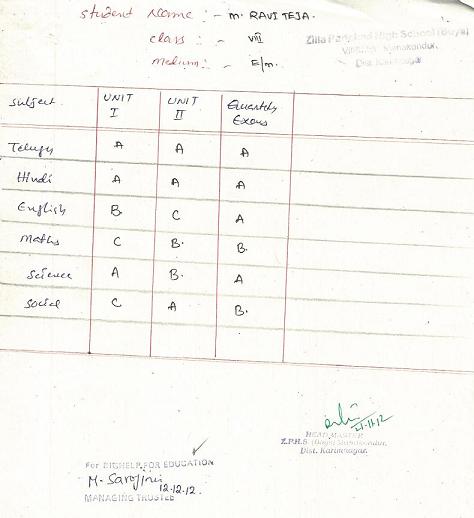 Student Name :- M. RAVI TEJA.
class :- VIII
Medium :- E/m.
Zilla Parishad High School (Boys)
Manakondur,
Dist. Karimnagar
Subject UNIT I UNIT II Quartely Exams
Telugu A A A
Hindi A A A
English B C A
Maths C B. B.
Science A B. A
Social C A B.
21-11-12
HEAD MASTER
Z.P.H.S. (Boys) Manakondur,
Dist. Karimnagar.
For BIGHELP FOR EDUCATION
M. Sarojini 12.12.12.
MANAGING TRUSTEE